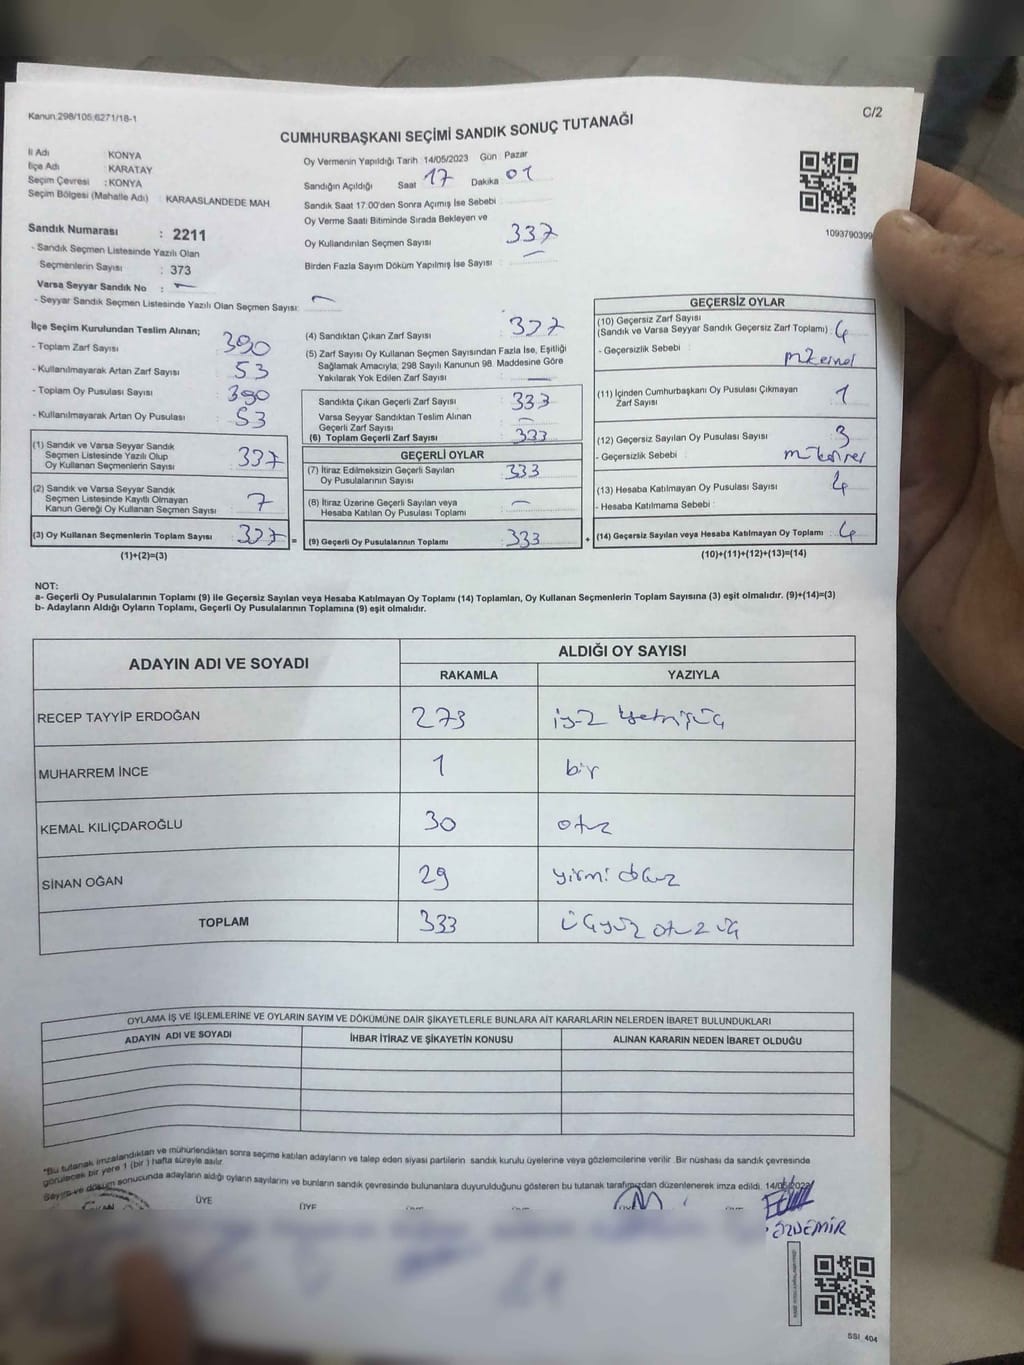 Kanun:298/105;6271/18-1
C/2
CUMHURBAŞKANI SEÇİMİ SANDIK SONUÇ TUTANAĞI
İl Adı KONYA
İlçe Adı : KARATAY
Seçim Çevresi : KONYA
Seçim Bölgesi (Mahalle Adı) : KARAASLANDEDE MAH
Sandık Numarası : 2211
- Sandık Seçmen Listesinde Yazılı Olan
Seçmenlerin Sayısı : 373
Varsa Seyyar Sandık No : -
- Seyyar Sandık Seçmen Listesinde Yazılı Olan Seçmen Sayısı: -
Oy Vermenin Yapıldığı Tarih 14/05/2023 Gün : Pazar
Sandığın Açıldığı Saat 17 Dakika 01
Sandık Saat 17:00'den Sonra Açımış İse Sebebi
Oy Verme Saati Bitiminde Sırada Bekleyen ve
Oy Kullandırılan Seçmen Sayısı 337
Birden Fazla Sayım Döküm Yapılmış İse Sayısı : -
1093790399
İlçe Seçim Kurulundan Teslim Alınan;
- Toplam Zarf Sayısı : 390
- Kullanılmayarak Artan Zarf Sayısı : 53
- Toplam Oy Pusulası Sayısı : 390
- Kullanılmayarak Artan Oy Pusulası : 53
(1) Sandık ve Varsa Seyyar Sandık
Seçmen Listesinde Yazılı Olup
Oy Kullanan Seçmenlerin Sayısı : 337
(2) Sandık ve Varsa Seyyar Sandık
Seçmen Listesinde Kayıtlı Olmayan
Kanun Gereği Oy Kullanan Seçmen Sayısı : 7
(3) Oy Kullanan Seçmenlerin Toplam Sayısı : 337 =
(1)+(2)=(3)
(4) Sandıktan Çıkan Zarf Sayısı : 337
(5) Zarf Sayısı Oy Kullanan Seçmen Sayısından Fazla İse, Eşitliği
Sağlamak Amacıyla, 298 Sayılı Kanunun 98. Maddesine Göre
Yakılarak Yok Edilen Zarf Sayısı : -
Sandıkta Çıkan Geçerli Zarf Sayısı : 333
Varsa Seyyar Sandıktan Teslim Alınan
Geçerli Zarf Sayısı : -
(6) Toplam Geçerli Zarf Sayısı : 333
GEÇERLİ OYLAR
(7) İtiraz Edilmeksizin Geçerli Sayılan
Oy Pusulalarının Sayısı : 333
(8) İtiraz Üzerine Geçerli Sayılan veya
Hesaba Katılan Oy Pusulası Toplamı : -
(9) Geçerli Oy Pusulalarının Toplamı : 333 +
GEÇERSİZ OYLAR
(10) Geçersiz Zarf Sayısı
(Sandık ve Varsa Seyyar Sandık Geçersiz Zarf Toplamı) : 4
- Geçersizlik Sebebi :
(11) İçinden Cumhurbaşkanı Oy Pusulası Çıkmayan
Zarf Sayısı : 1
(12) Geçersiz Sayılan Oy Pusulası Sayısı : 3
- Geçersizlik Sebebi :
(13) Hesaba Katılmayan Oy Pusulası Sayısı : 4
- Hesaba Katılmama Sebebi :
(14) Geçersiz Sayılan veya Hesaba Katılmayan Oy Toplamı : 4
(10)+(11)+(12)+(13)=(14)
NOT:
a- Geçerli Oy Pusulalarının Toplamı (9) ile Geçersiz Sayılan veya Hesaba Katılmayan Oy Toplamı (14) Toplamları, Oy Kullanan Seçmenlerin Toplam Sayısına (3) eşit olmalıdır. (9)+(14)=(3)
b- Adayların Aldığı Oyların Toplamı, Geçerli Oy Pusulalarının Toplamına (9) eşit olmalıdır.
ADAYIN ADI VE SOYADI
ALDIĞI OY SAYISI
RAKAMLA YAZIYLA
RECEP TAYYİP ERDOĞAN 273
MUHARREM İNCE 1 bir
KEMAL KILIÇDAROĞLU 30 otuz
SİNAN OĞAN 29 yirmi dokuz
TOPLAM 333 üçyüz otuz üç
OYLAMA İŞ VE İŞLEMLERİNE VE OYLARIN SAYIM VE DÖKÜMÜNE DAİR ŞİKAYETLERLE BUNLARA AİT KARARLARIN NELERDEN İBARET BULUNDUKLARI
ADAYIN ADI VE SOYADI İHBAR İTİRAZ VE ŞİKAYETİN KONUSU ALINAN KARARIN NEDEN İBARET OLDUĞU
"Bu tutanak imzalandıktan ve mühürlendikten sonra seçime katılan adayların ve talep eden siyasi partilerin sandık kurulu üyelerine veya gözlemcilerine verilir. Bir nüshası da sandık çevresinde
görülecek bir yere 1 (bir ) hafta süreyle asılır.
Sayım ve döküm sonucunda adayların aldığı oyların sayılarını ve bunların sandık çevresinde bulunanlara duyurulduğunu gösteren bu tutanak tarafımızdan düzenlenerek imza edildi. 14/05/2023
ÜYE
ÜYE
ÖZDEMİR
SSİ_404